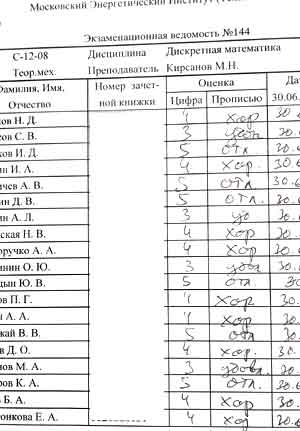 Московский Энергетический Институт
Экзаменационная ведомость №144
С-12-08 Дисциплина Дискретная математика
Теор.мех. Преподаватель Кирсанов М.Н.
Фамилия, Имя, Отчество Номер зачетной книжки Оценка
Цифра Прописью 30.06.
ов Н. Д. 4 хор
ов С. В. 3
ов И. Д. 5 отл
ин И. А. 4 хор.
ичев А. В. 5 отл.
ин Д. В. 5 отл.
ин А. Л. 3
ская Н. В. 4 хор
оручко А. А. 4 хор
инин О. Ю. 3
цын Ю. В. 5 отл
ов П. Г. 4 хор
А. А. 4 хор
жай В. В. 5 отл
в Д. О. 4 хор.
ов М. А. 3
ров К. А. 5 отл.
Б. А. 4 хор
онкова Е. А. 4 хор